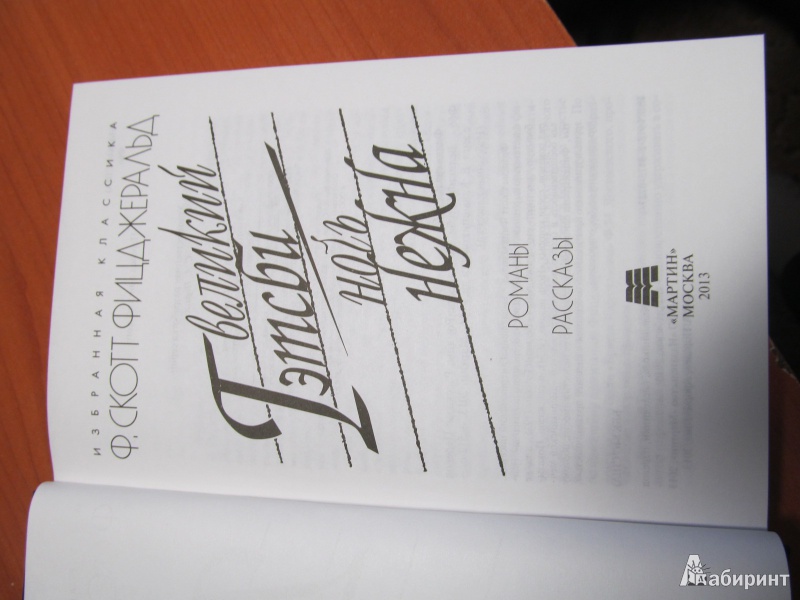 ИЗБРАННАЯ КЛАССИКА
Ф. СКОТТ ФИЦДЖЕРАЛЬД
великий
Гэтсби
ночь
нежна
РОМАНЫ
РАССКАЗЫ
«МАРТИН»
МОСКВА
2013
Лабиринт